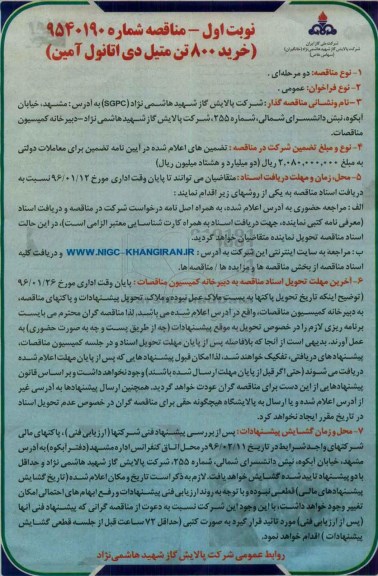 شرکت ملی گاز ایران
شرکت پالایش گاز شهید هاشمی نژاد (خانگیران)
(سهامی خاص)
نوبت اول - مناقصه شماره ۹۵۴۰۱۹۰
(خرید ۸۰۰ تن متیل دی اتانول آمین)
۱- نوع مناقصه: دو مرحله ای.
۲- نوع فراخوان: عمومی.
۳- نام و نشانی مناقصه گذار: شرکت پالایش گاز شهید هاشمی نژاد (SGPC) به آدرس: مشهد، خیابان
آبکوه، نبش دانشسرای شمالی، شماره ۲۵۵، شرکت پالایش گاز شهید هاشمی نژاد - دبیرخانه کمیسیون
مناقصات.
۴- نوع و مبلغ تضمین شرکت در مناقصه: تضمین های اعلام شده در آیین نامه تضمین برای معاملات دولتی
به مبلغ ۲,۰۸۰,۰۰۰,۰۰۰ ریال (دو میلیارد و هشتاد میلیون ریال)
۵- محل، زمان و مهلت دریافت اسناد: متقاضیان می توانند تا پایان وقت اداری مورخ ۹۶/۰۱/۱۲ نسبت به
دریافت اسناد مناقصه به یکی از روشهای زیر اقدام نمایند:
الف: مراجعه حضوری به آدرس اعلام شده، به همراه اصل نامه درخواست شرکت در مناقصه و دریافت اسناد
(معرفی نامه کتبی نماینده، جهت دریافت اسناد به همراه کارت شناسایی معتبر الزامی است)، در این حالت
اسناد مناقصه تحویل نماینده متقاضیان خواهد گردید.
ب: مراجعه به سایت اینترنتی این شرکت به آدرس: WWW.NIGC-KHANGIRAN.IR و دریافت کلیه
اسناد مناقصه از بخش مناقصه ها و مزایده ها / مناقصه ها.
۶- آخرین مهلت تحویل اسناد مناقصه به دبیرخانه کمیسیون مناقصات: پایان وقت اداری مورخ ۹۶/۰۱/۲۶
(توضیح اینکه تاریخ تحویل پاکتها به پست ملاک عمل نبوده و ملاک، تحویل پیشنهادات و پاکتهای مناقصه،
به دبیرخانه کمیسیون مناقصات، واقع در آدرس اعلام شده می باشد. لذا مناقصه گران محترم می بایست
برنامه ریزی لازم را در خصوص تحویل به موقع پیشنهادات (چه از طریق پست و چه به صورت حضوری) به
عمل آورند. بدیهی است از آنجا که بلافاصله پس از پایان مهلت تحویل اسناد و در جلسه کمیسیون مناقصات،
پیشنهادهای دریافتی، تفکیک خواهند شد، لذا امکان قبول پیشنهادهایی که پس از پایان مهلت اعلام شده
دریافت می شوند (حتی اگر قبل از پایان مهلت ارسال شده باشند) وجود نخواهد داشت و بر اساس قانون
پیشنهادهایی از این دست برای مناقصه گران عودت خواهد گردید. همچنین ارسال پیشنهادها به آدرسی غیر
از آدرس اعلام شده و یا ارسال به پالایشگاه هیچگونه حقی برای مناقصه گران در خصوص عدم تحویل اسناد
در تاریخ مقرر ایجاد نخواهد کرد.
۷- محل و زمان گشایش پیشنهادات: پس از بررسی پیشنهاد فنی شرکتها (ارزیابی فنی)، پاکتهای مالی
شرکتهای واجد شرایط در تاریخ ۹۶/۰۲/۱۱ در محل اتاق کنفرانس اداره مشهد (دفتر آبکوه) به آدرس
مشهد، خیابان آبکوه، نبش دانشسرای شمالی، شماره ۲۵۵، شرکت پالایش گاز شهید هاشمی نژاد و حداقل
با دو پیشنهاد تایید شده گشایش خواهد یافت. لازم به ذکر است تاریخ و مکان اعلام شده (تاریخ گشایش
پیشنهادهای مالی) قطعی نبوده و با توجه به روند ارزیابی فنی پیشنهادات و رفع ابهام های احتمالی امکان
تغییر وجود خواهد داشت، با این وجود این شرکت نسبت به دعوت از مناقصه گرانی که پیشنهاد فنی آنها
(پس از ارزیابی فنی) مورد تائید قرار گیرد به صورت کتبی (حداقل ۷۲ ساعت قبل از جلسه قطعی گشایش
پیشنهادات) اقدام خواهد نمود.
روابط عمومی شرکت پالایش گاز شهید هاشمی نژاد